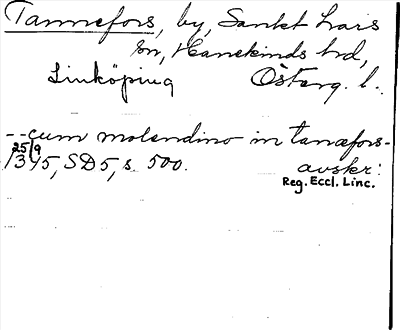 Tannefors, by, Sankt Lars
sn, Hanekinds hd,
Linköping Österg. l.
--cum molendino in tanæfors-
25/9
1345, SD5, s. 500. avskr:
Reg. Eccl. Linc.